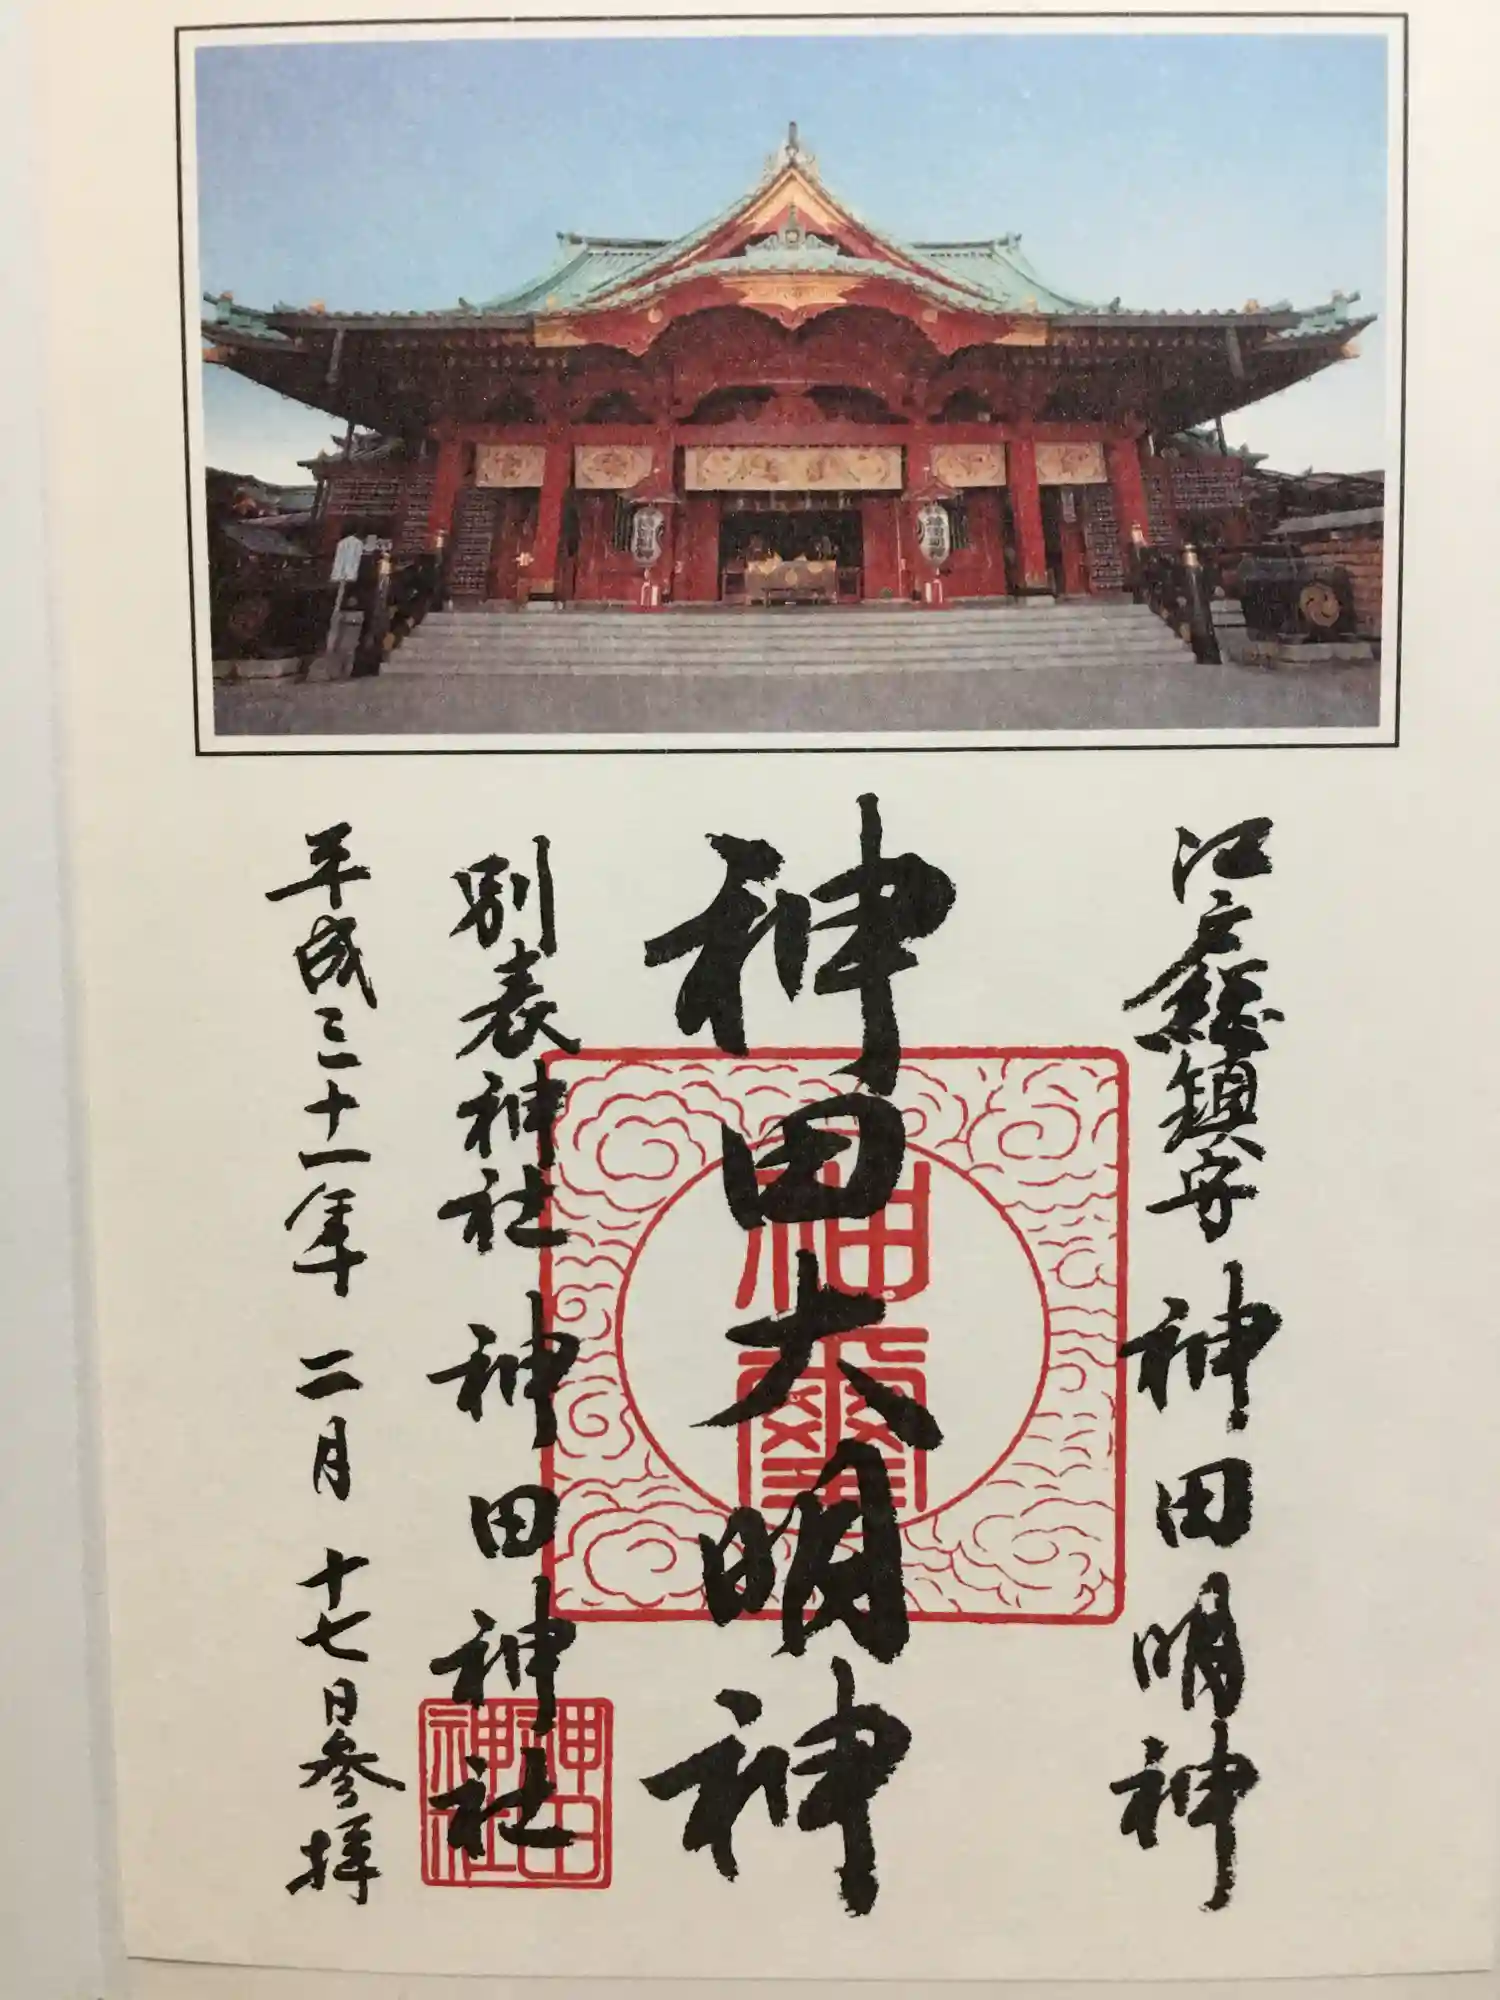 江戸総鎮守 神田明神
神田大明神
別表神社 神田神社
平成三十一年 二月 十七日参拝
神璽
神田
神社